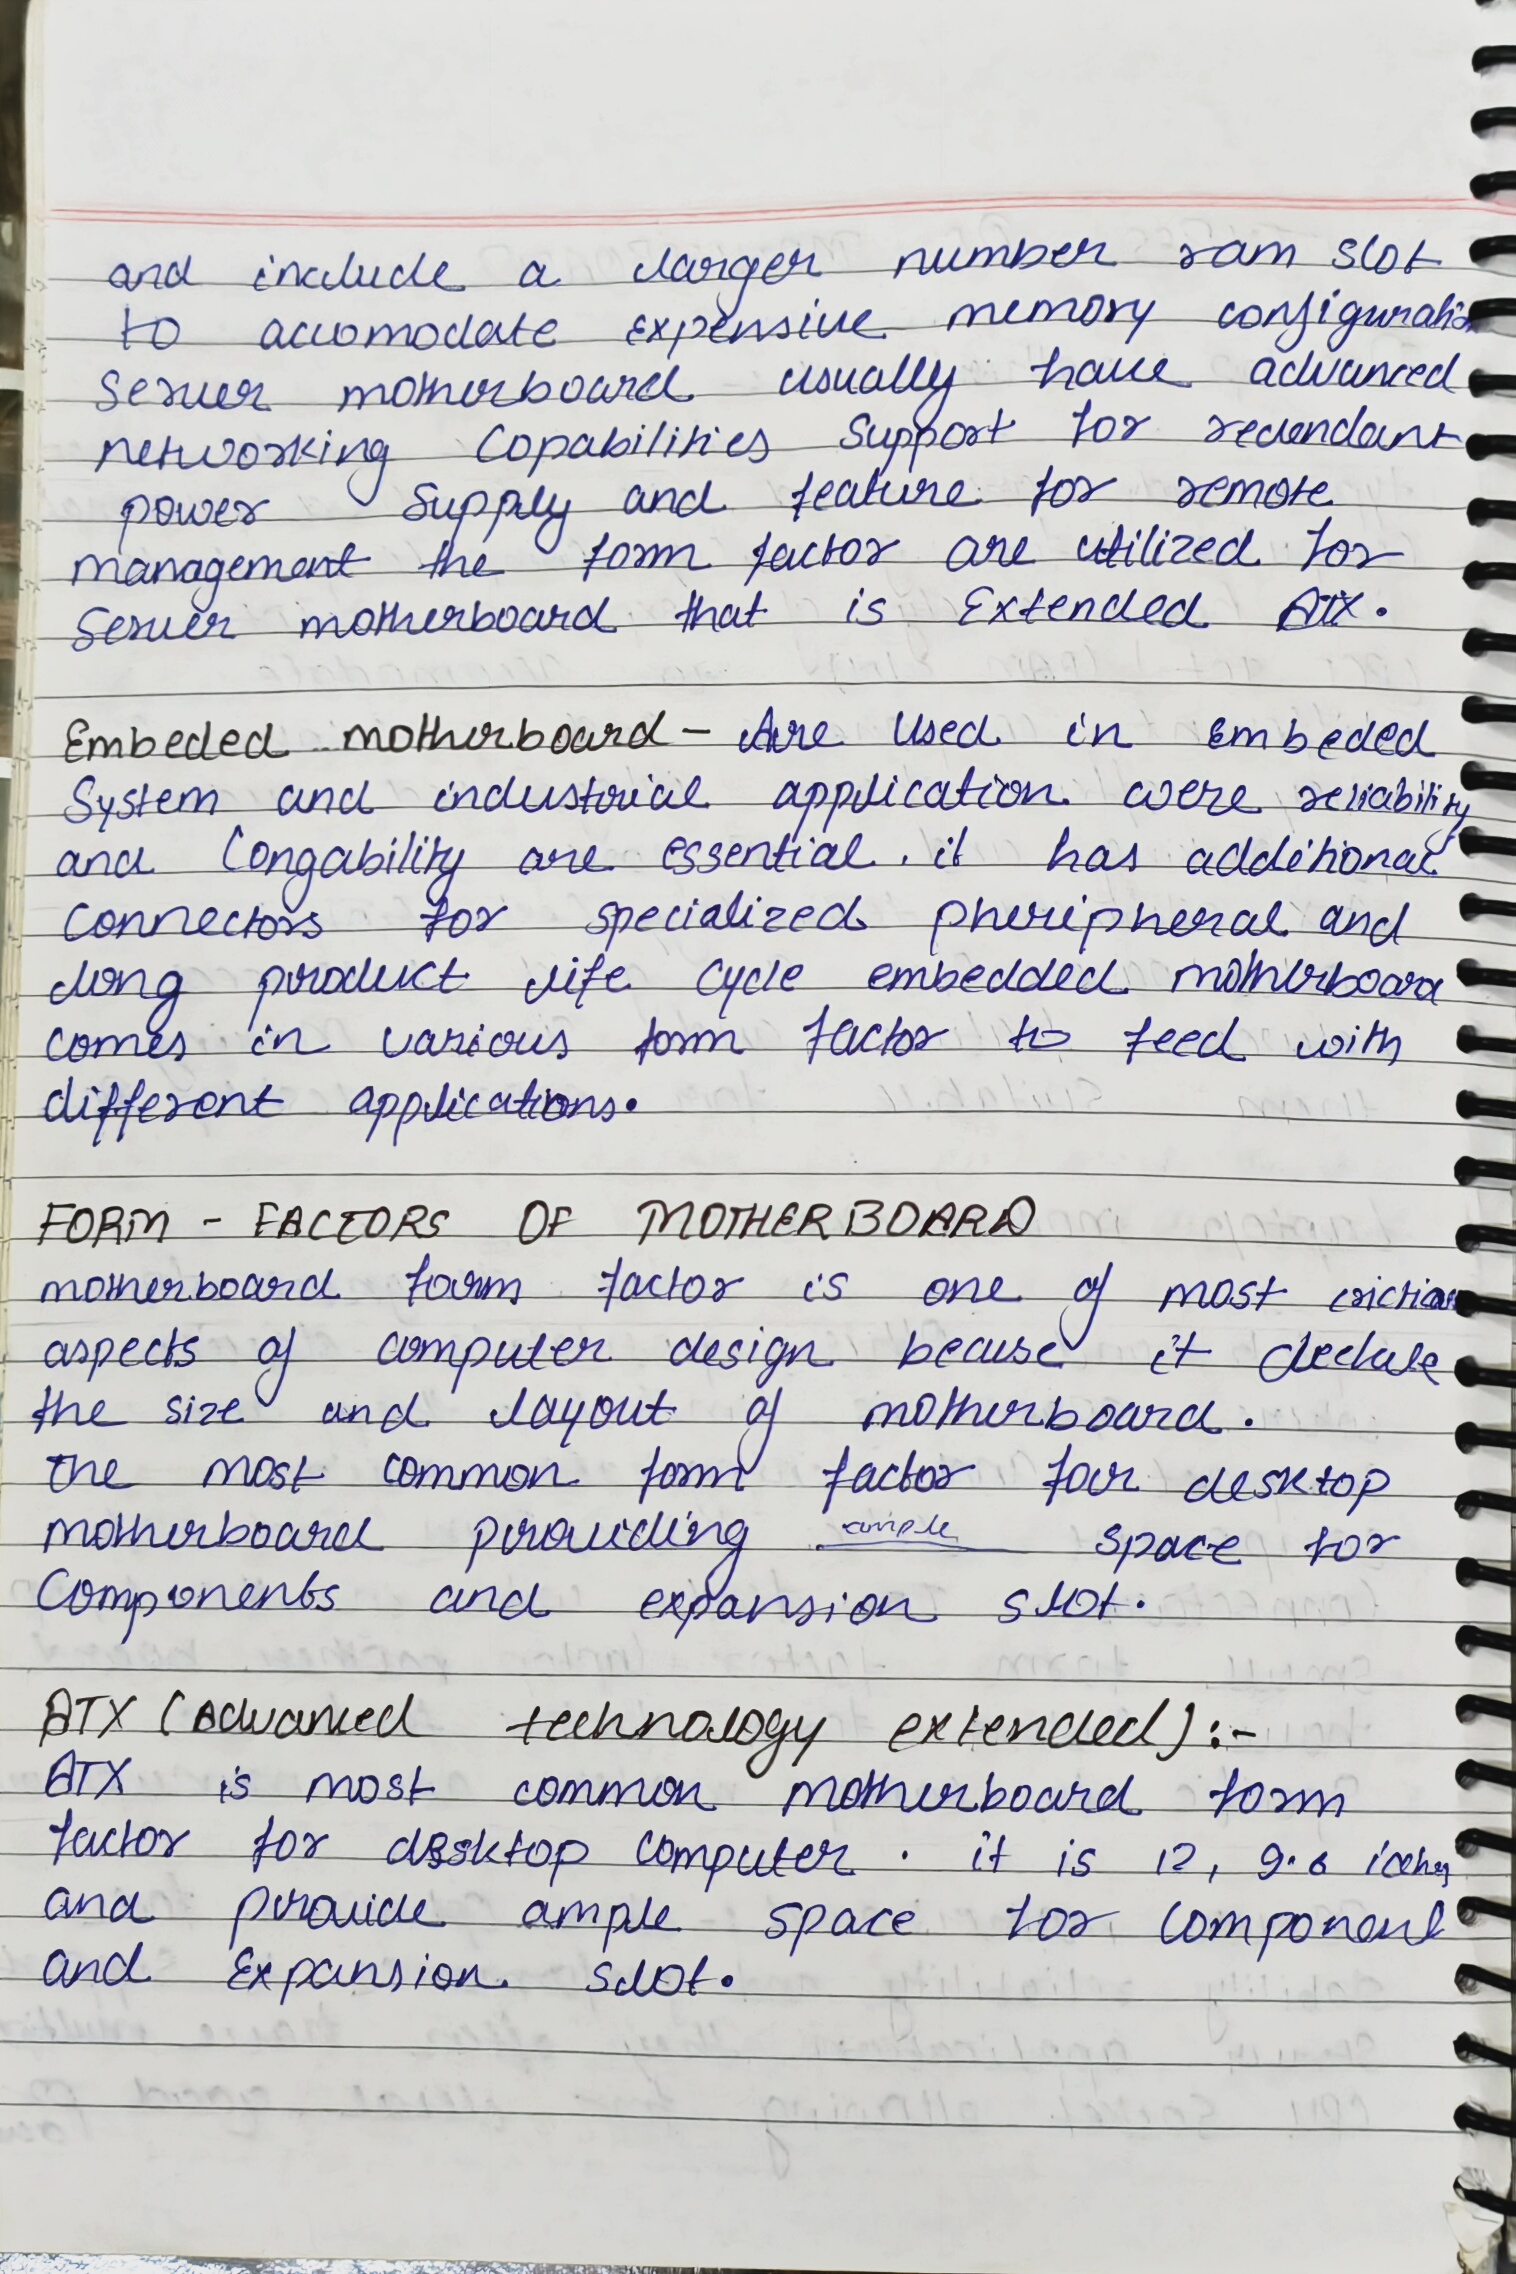 and include a larger number ram slot
to accomodate expensive memory configuratio
Server motherboard usually have advanced
networking Capabilities Support for redundant
power Supply and feature for remote
management the form factor are utilized for
Server motherboard that is Extended ATX.
Embeded motherboard - Are Used in Embeded
System and industrial application were reliability
and longability are essential. it has additional
Connectors for specialized pheripheral and
long product life cycle embedded motherboard
comes in various form factor to feed with
different applications.
FORM - FACTORS OF MOTHERBOARD
motherboard form factor is one of most
aspects of computer design becuse it
the size and layout of motherboard.
The most common form factor for desktop
motherboard providing ample space for
Components and expansion slot.
ATX (Advanced technology extended):-
ATX is most common motherboard form
factor for desktop computer. it is 12, 9.6
and provide ample space for component
and Expansion slot.